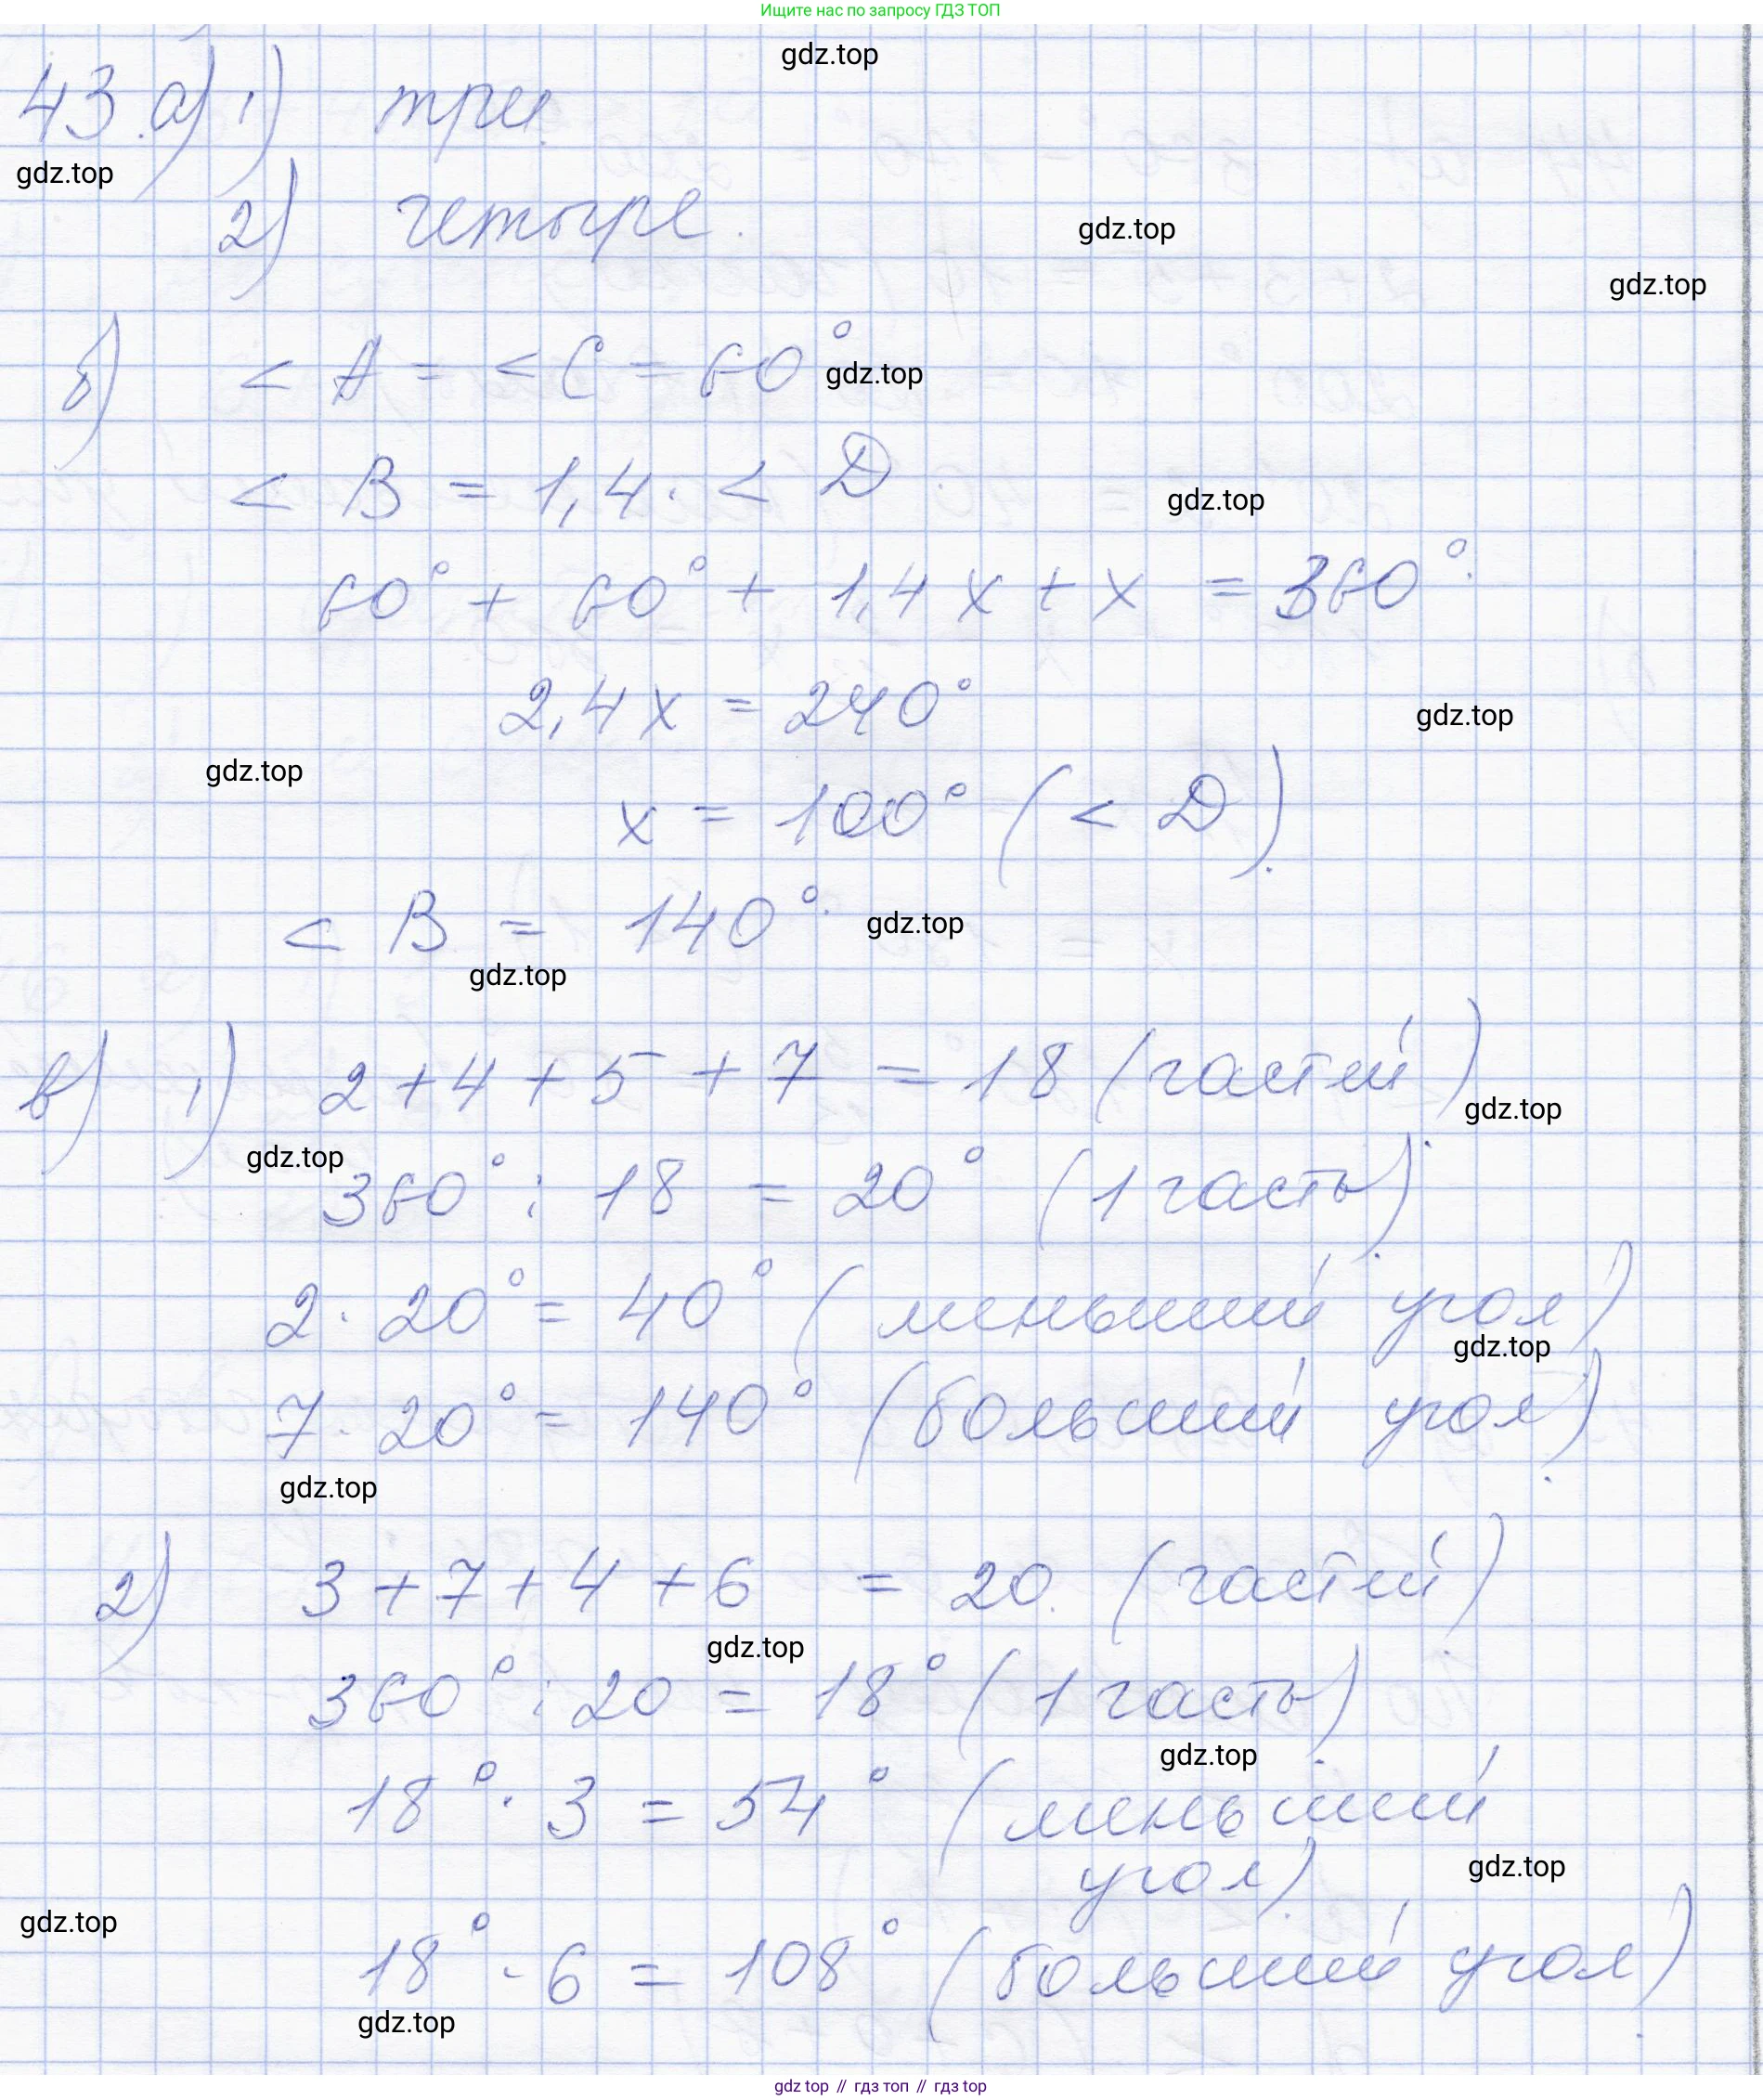 Ищите нас по запросу ГДЗ ТОП
gdz.top
43. а) 1) три.
gdz.top
2) четыре.
gdz.top
gdz.top
б) < A = < C = 60°
gdz.top
< B = 1,4 · < D.
gdz.top
60° + 60° + 1,4 x + x = 360°.
2,4 x = 240°
gdz.top
gdz.top
x = 100° (< D).
< B = 140°.
gdz.top
gdz.top
в) 1) 2 + 4 + 5 + 7 = 18 (частей).
gdz.top
gdz.top
360° : 18 = 20° (1 часть).
2 · 20° = 40° (меньший угол)
gdz.top
7 · 20° = 140° (больший угол).
gdz.top
2) 3 + 7 + 4 + 6 = 20. (частей)
gdz.top
360° : 20 = 18° (1 часть)
gdz.top
18° · 3 = 54° (меньший
угол).
gdz.top
gdz.top
18° · 6 = 108° (больший угол).
gdz.top
gdz top // гдз топ // гдз top